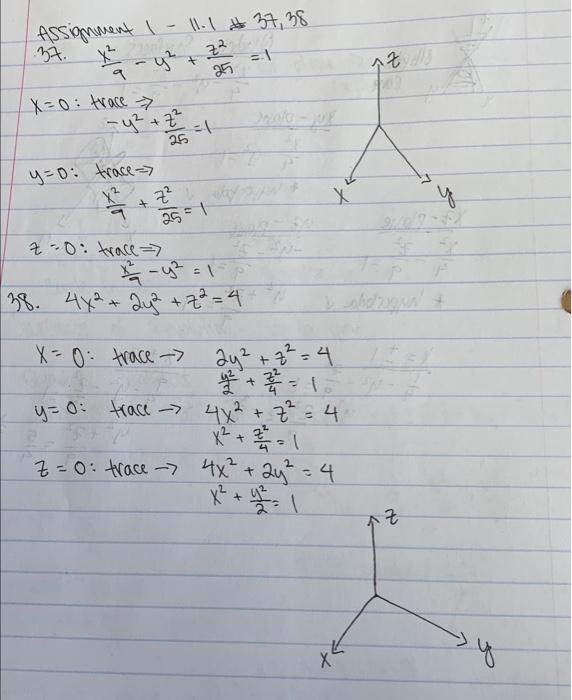 Assignment 1 - 11.1 # 37, 38
37. x²/9 - y² + z²/25 = 1
z
x
y
x = 0 : trace ⇒
-y² + z²/25 = 1
y = 0 : trace ⇒
x²/9 + z²/25 = 1
z = 0 : trace ⇒
x²/9 - y² = 1
38. 4x² + 2y² + z² = 4
x = 0 : trace → 2y² + z² = 4
y²/2 + z²/4 = 1
y = 0 : trace → 4x² + z² = 4
x² + z²/4 = 1
z = 0 : trace → 4x² + 2y² = 4
x² + y²/2 = 1
z
x
y